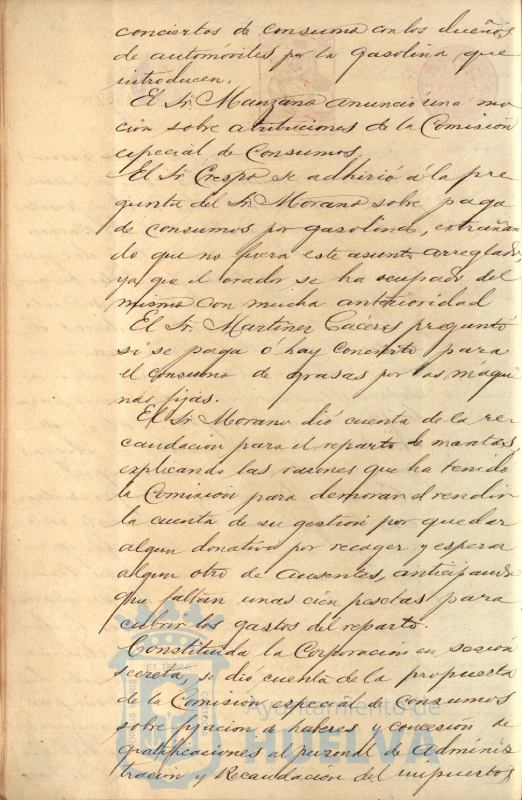 conciertos de consumo con los dueños
de automóviles por la gasolina que
introducen.
El Sr. Manzano anunció una mo
ción sobre atribuciones de la Comisión
especial de Consumos.
El Sr. Crespo se adhirió á la pre
gunta del Sr. Morano sobre pago
de consumos por gasolina, extrañan
do que no fuera este asunto arreglado
ya que el orador se ha ocupado del
mismo con mucha anterioridad
El Sr. Martinez Cáceres preguntó
si se paga ó hay concierto para
el consumo de grasas por las máqui
nas fijas.
El Sr. Morano dió cuenta de la re
caudación para el reparto de mantas,
explicando las razones que ha tenido
la Comisión para demorar el rendir
la cuenta de su gestión por quedar
algun donativo por recoger y esperar
algun otro de ausentes, anticipando
que faltan unas cien pesetas para
cubrir los gastos del reparto.
Constituida la Corporación en sesión
secreta, se dió cuenta de la propuesta
de la Comisión especial de Consumos
sobre fijación de haberes y concesión de
gratificaciones al personal de Adminis
tración y Recaudación del impuesto,
Ayuntamiento de
HUELVA